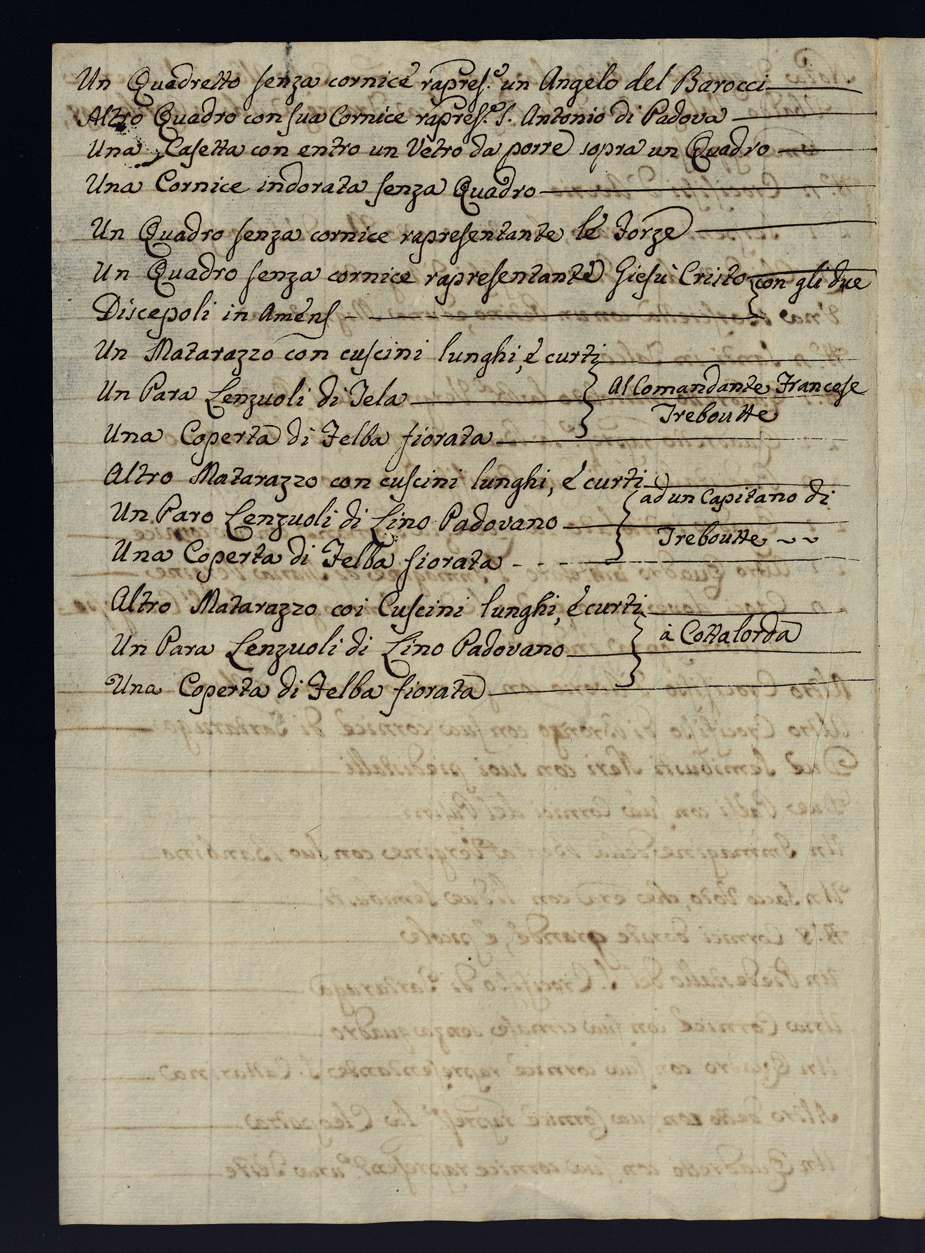 Un Quadretto senza cornice rapres.e un Angelo del Barocci
Altro Quadro con sua Cornice rapres.e S. Antonio di Padova
Una Casetta con entro un Vetro da porre sopra un Quadro
Una Cornice indorata senza Quadro
Un Quadro senza cornice rapresentante le Forze
Un Quadro senza cornice rapresentante Giesù Cristo con gli due
Discepoli in
Un Matarazzo con cuscini lunghi, è curti
Un Para Lenzuoli di Tela
Al Comandante Francese
Treboutte
Una Coperta di Felba fiorata
Altro Matarazzo con cuscini lunghi, è curti
ad un Capitano di
Un Paro Lenzuoli di Lino Padovano
Treboutte
Una Coperta di Felba fiorata
Altro Matarazzo coi Cuscini lunghi, è curti
à Cottalorda
Un Para Lenzuoli di Lino Padovano
Una Coperta di Felba fiorata